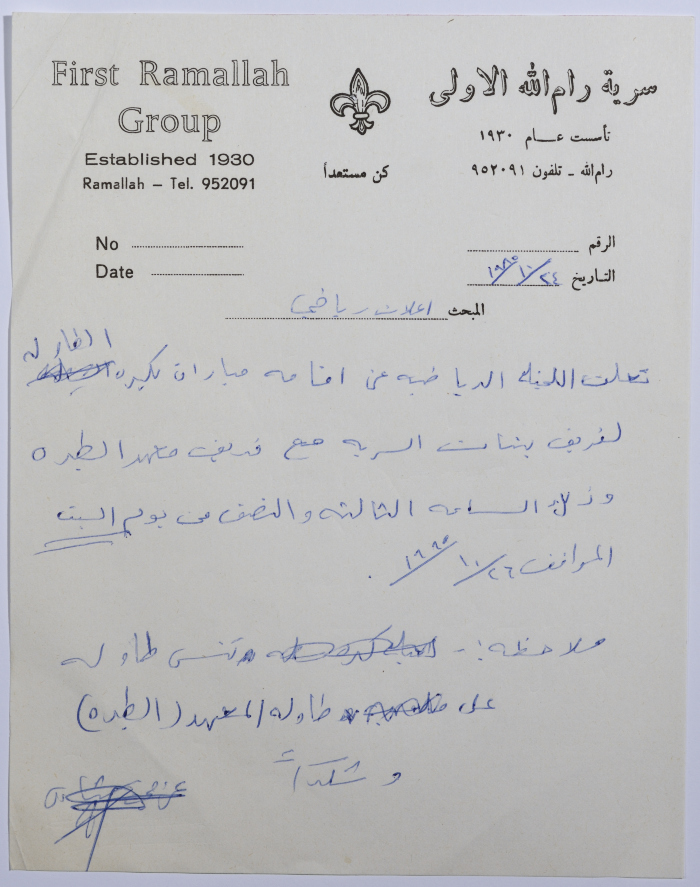 First Ramallah
Group
Established 1930
Ramallah – Tel. 952091
كن مستعداً
سرية رام الله الاولى
تأسست عام ١٩٣٠
رام الله - تلفون ٩٥٢٠٩١
No
Date
الرقم
التاريخ ٢٤/١٠/١٩٨٥
المبحث اعلان رياضي
الطاوله
تعلن اللجنه الرياضيه عن اقامه مباراة بكرة
لفريق بنات السريه مع فريق معهد الطيره
وذلك الساعه الثالثه والنصف من يوم السبت
الموافق ٢٦/١٠/١٩٨٥.
ملاحظه :- تنس طاوله
على طاوله المعهد (الطيره)
وشكراً